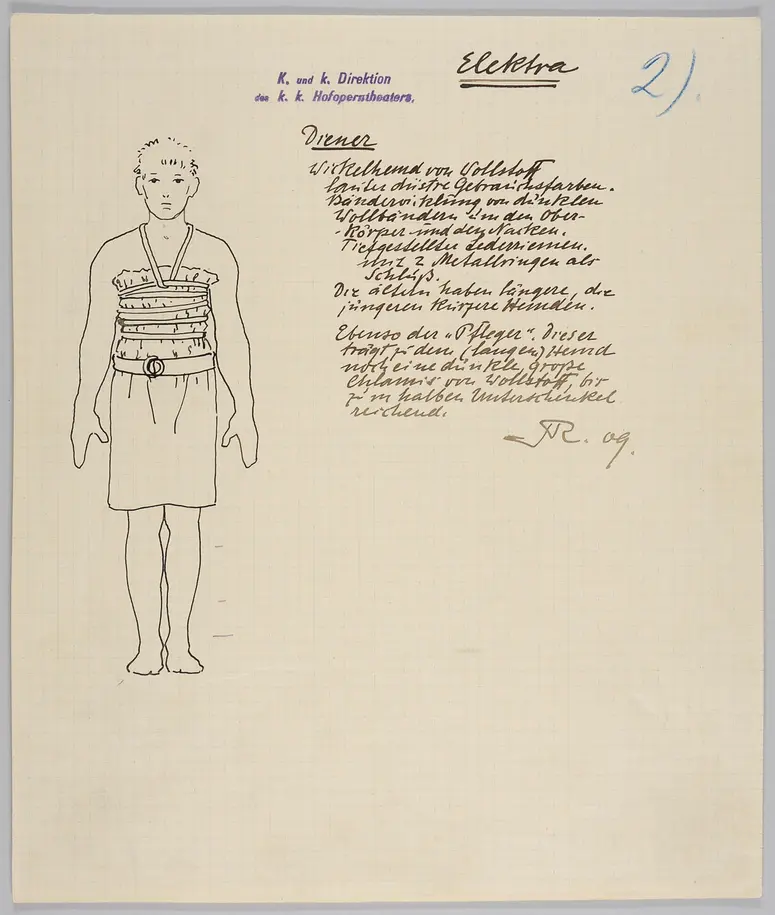 Elektra
2).
K. und k. Direktion
des k. k. Hofoperntheaters.
Diener
Wickelhemd von Wollstoff
lauter düstre Gebrauchsfarben.
Bänderwicklung von dunklen
Wollbändern um den Ober-
-körper und den Nacken.
Tiefgestellter Lederriemen.
mit 2 Metallringen als
Schluß.
Die ältern haben längere, die
jüngeren kürzere Hemden.
Ebenso der „Pfleger". Dieser
trägt zu dem (langen) Hemd
noch eine dunkle, große
Chlamis von Wollstoff, bis
zum halben Unterschenkel
reichend.
AR. 09.